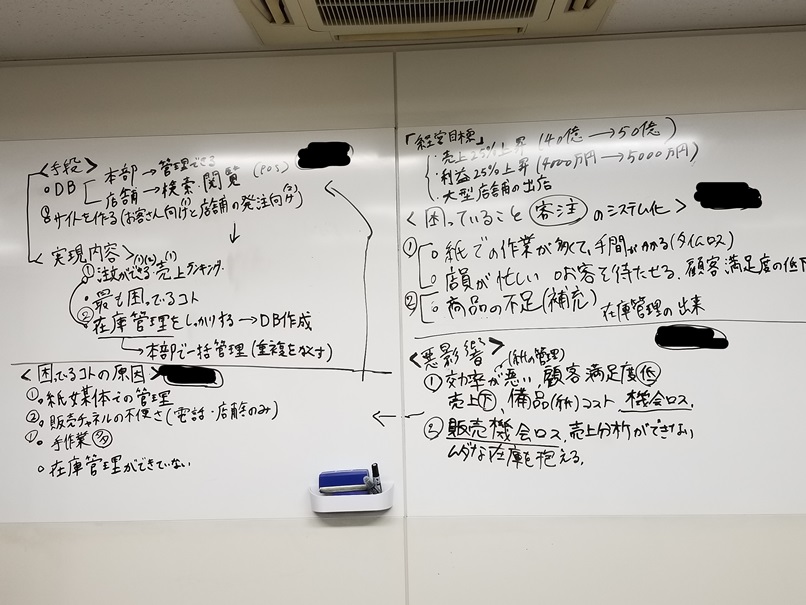 <手段>
○DB 本部→管理できる
店舗→検索・閲覧 (POS)
②サイトを作る(お客さん向け(1)と店舗の発注向け(2))
<実現内容>
① 注文ができる(1)(2) 売上ランキング(1)
・最も困っているコト
② 在庫管理をしっかりする→DB作成
→本部で一括管理(重複をなくす)
<困っているコトの原因>
① 紙媒体での管理
② 販売チャネルの不便さ(電話・店舗のみ)
① 手作業 多
○ 在庫管理ができていない
「経営目標」
・売上25%上昇(40億→50億)
・利益25%上昇(4000万円→5000万円)
・大型店舗の出店
<困っていること 客注 のシステム化>
① ○紙での作業が多くて、手間がかかる(タイムロス)
○店員が忙しい ○お客を待たせる、顧客満足度の低下
② ○商品の不足(補充) 在庫管理の出来
<悪影響> (紙の管理)
① 効率が悪い、顧客満足度低
売上下、備品(紙)コスト 機会ロス、
② 販売機会ロス、売上分析ができない
ムダな在庫を抱える、